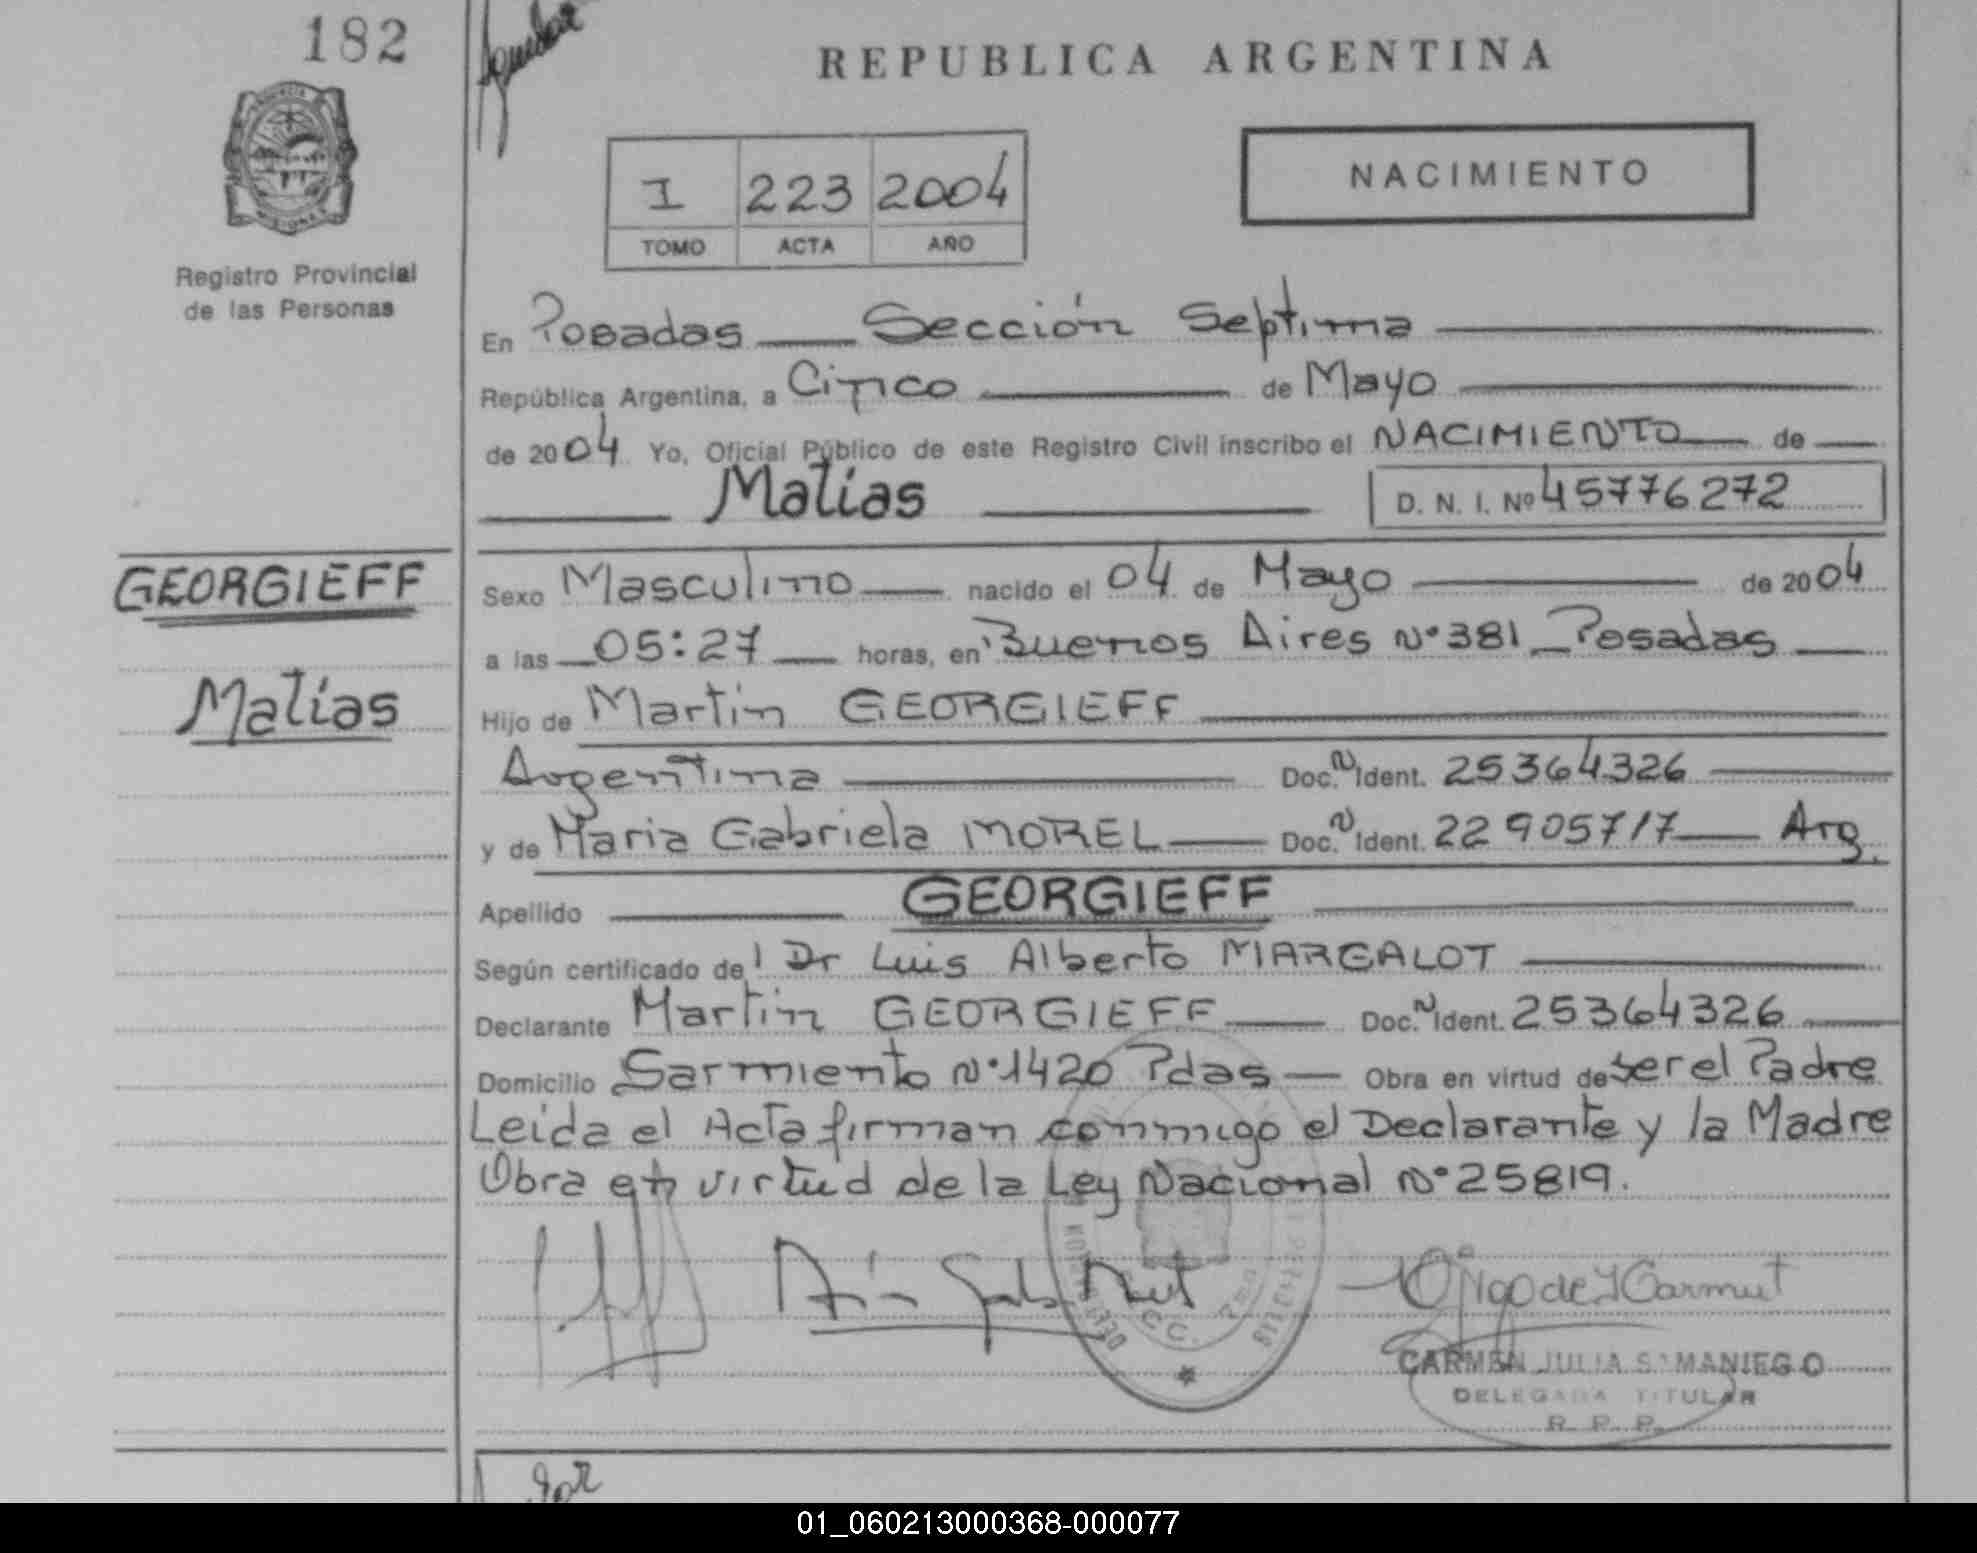 182
REPUBLICA ARGENTINA
I 223 2004
TOMO ACTA AÑO
NACIMIENTO
PROVINCIA
MISIONES
Registro Provincial
de las Personas
En Posadas Sección Septima
República Argentina, a Cinco de Mayo
de 2004 Yo, Oficial Público de este Registro Civil inscribo el NACIMIENTO de
Matías D. N. I. Nº 45776272
GEORGIEFF
Matías
Sexo Masculino nacido el 04 de Mayo de 2004
a las 05:27 horas, en Buenos Aires Nº 381 Posadas
Hijo de Martin GEORGIEFF
Argentina Doc. N Ident. 25364326
y de Maria Gabriela MOREL Doc. N Ident. 22905717 Arg.
Apellido GEORGIEFF
Según certificado del Dr Luis Alberto MARGALOT
Declarante Martin GEORGIEFF Doc. N Ident. 25364326
Domicilio Sarmiento Nº 1420 Pdas Obra en virtud de ser el Padre
Leida el Acta firman conmigo el Declarante y la Madre
Obra en virtud de la Ley Nacional Nº 25819.
CARMEN JULIA SAMANIEGO
DELEGADA TITULAR
R. P. P.
01_060213000368-000077